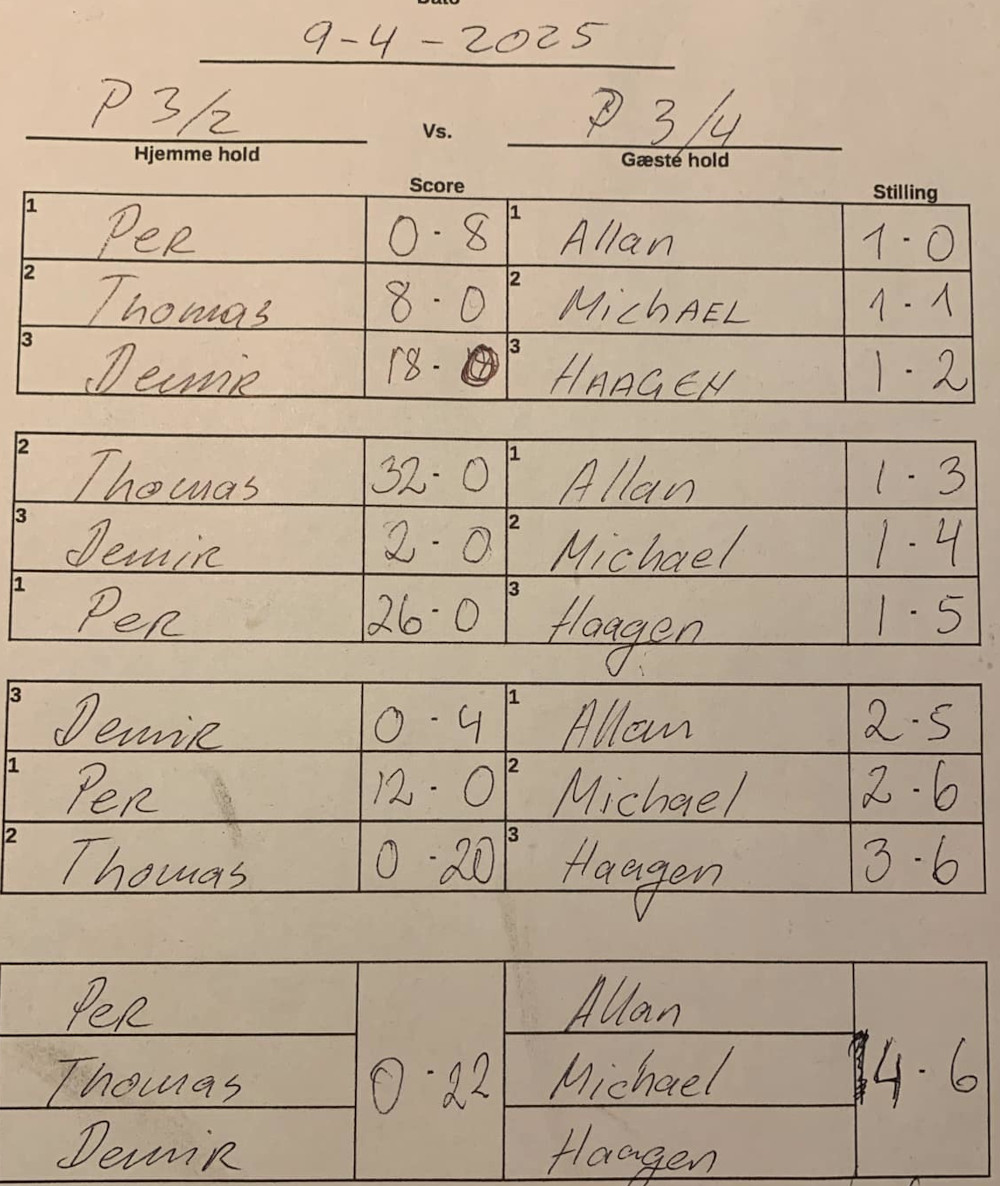 Dato
9-4-2025
P 3/2 Vs. P 3/4
Hjemme hold Gæste hold
Score Stilling
1 Per 0-8 1 Allan 1-0
2 Thomas 8-0 2 MichAEL 1-1
3 Demir 18-0 3 HAAGEN 1-2
2 Thomas 32-0 1 Allan 1-3
3 Demir 2-0 2 Michael 1-4
1 Per 26-0 3 Haagen 1-5
3 Demir 0-4 1 Allan 2-5
1 Per 12-0 2 Michael 2-6
2 Thomas 0-20 3 Haagen 3-6
Per Allan
Thomas 0-22 Michael 4-6
Demir Haagen